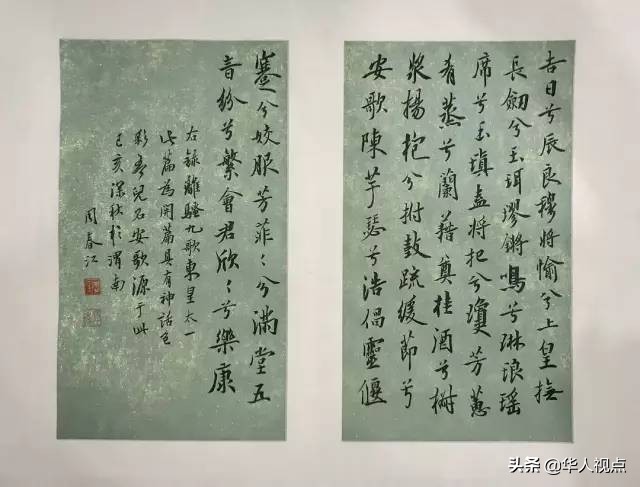 吉日兮辰良穆將愉兮上皇撫
長劍兮玉珥璆鏘鳴兮琳琅瑤
席兮玉瑱盍將把兮瓊芳蕙
肴蒸兮蘭藉奠桂酒兮椒
漿揚抱兮拊鼓疏緩節兮
安歌陳竽瑟兮浩倡靈偃
蹇兮姣服芳菲〻兮滿堂五
音紛兮繁會君欣〻兮樂康
右錄離騷九歌東皇太一
此篇為開篇具有神話色
彩兒名安歌源于此
己亥深秋於渭南
周春江
头条 @华人视点